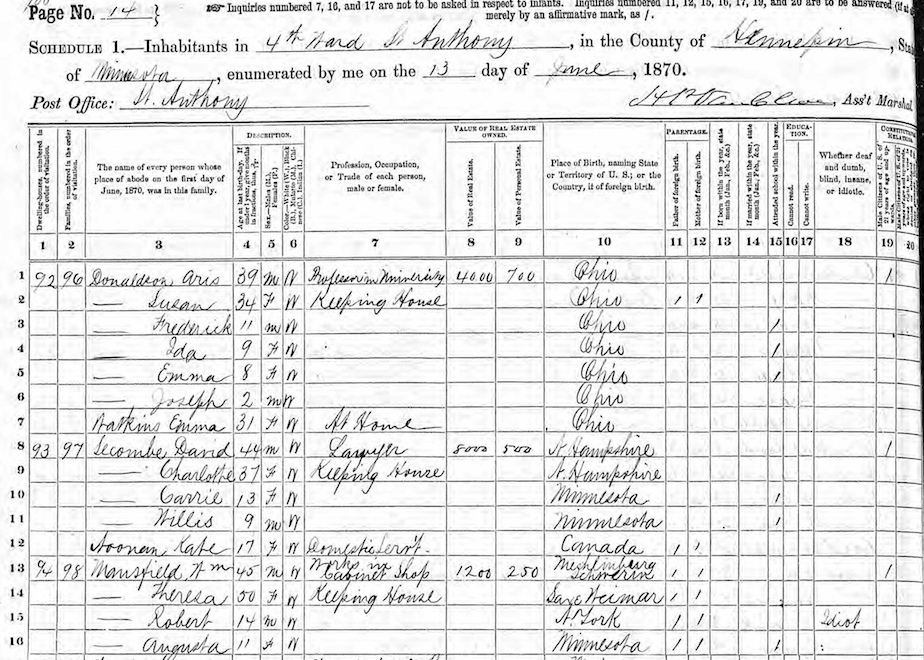 Page No. 14 }
☞ Inquiries numbered 7, 16, and 17 are not to be asked in respect to infants. Inquiries numbered 11, 12, 15, 16, 17, 19, and 20 are to be answered (if at
merely by an affirmative mark, as /.
SCHEDULE 1.—Inhabitants in 4th Ward St Anthony, in the County of Hennepin, Sta
of Minnesota, enumerated by me on the 13 day of June, 1870.
Post Office: St. Anthony Ass't Marshal
DESCRIPTION. VALUE OF REAL ESTATE OWNED. PARENTAGE. EDUCATION. CONSTITU
Dwelling-houses, numbered in the order of visitation. Families, numbered in the order of visitation. The name of every person whose place of abode on the first day of June, 1870, was in this family. Age at last birth-day. If under 1 year, give months in fractions, thus, Sex.—Males (M.), Females (F.) Profession, Occupation, or Trade of each person, male or female. Value of Real Estate. Value of Personal Estate. Place of Birth, naming State or Territory of U. S.; or the Country, if of foreign birth. Father of foreign birth. Mother of foreign birth. If born within the year, state month (Jan., Feb., &c.) If married within the year, state month (Jan., Feb., &c.) Attended school within the year. Cannot read. Cannot write. Whether deaf and dumb, blind, insane, or idiotic.
1 2 3 4 5 6 7 8 9 10 11 12 13 14 15 16 17 18 19 20
1 92 96 Donaldson Aris 39 m W Professor in University 4000 700 Ohio 1
2 — Susan 34 F W Keeping House Ohio 1 1
3 — Frederick 11 m W Ohio 1
4 — Ida 9 F W Ohio 1
5 — Emma 8 F W Ohio 1
6 — Joseph 2 m W Ohio
7 Watkins Emma 31 F W At Home Ohio
8 93 97 Secombe David 44 m W Lawyer 8000 500 N. Hampshire 1
9 — Charlotte 37 F W Keeping House N. Hampshire
10 — Carrie 13 F W Minnesota 1
11 — Willis 9 m W Minnesota 1
12 Noonan Kate 17 F W Domestic Serv't. Canada 1 1
13 94 98 Mansfield Wm 45 m W Works in Cabinet Shop 1200 250 Mechlinburg Schwerin 1 1 1
14 — Theresa 50 F W Keeping House Saxe Weimar 1 1
15 — Robert 14 m W N. York 1 1 Idiot
16 — Augusta 11 F W Minnesota 1 1 1